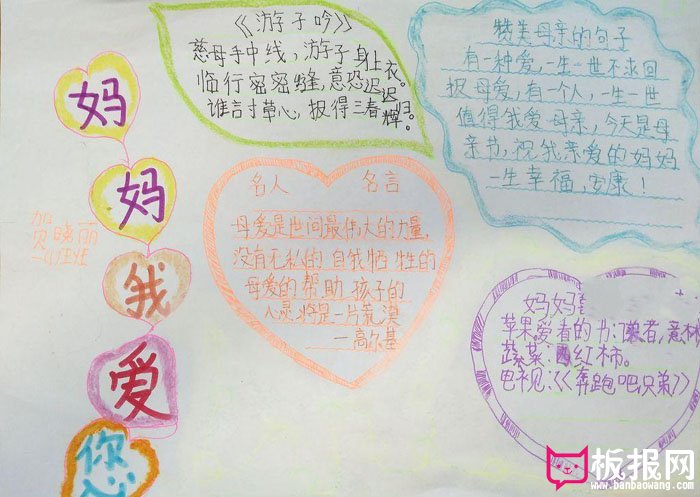 妈
妈
我
爱
你
《游子吟》
慈母手中线，游子身上衣。
临行密密缝，意恐迟迟归。
谁言寸草心，报得三春晖。
赞美母亲的句子
有一种爱，一生一世不求回
报母爱，有一个人，一生一世
值得我爱母亲，今天是母
亲节，祝我亲爱的妈妈
一生幸福，安康！
名人 名言
母爱是世间最伟大的力量，
没有无私的自我牺牲的
母爱的帮助，孩子的
心灵将是一片荒漠
—高尔基
妈妈
苹果爱看的书：读者，意林
蔬菜：西红柿。
电视：《奔跑吧兄弟》
板报网
www.banbaowang.com